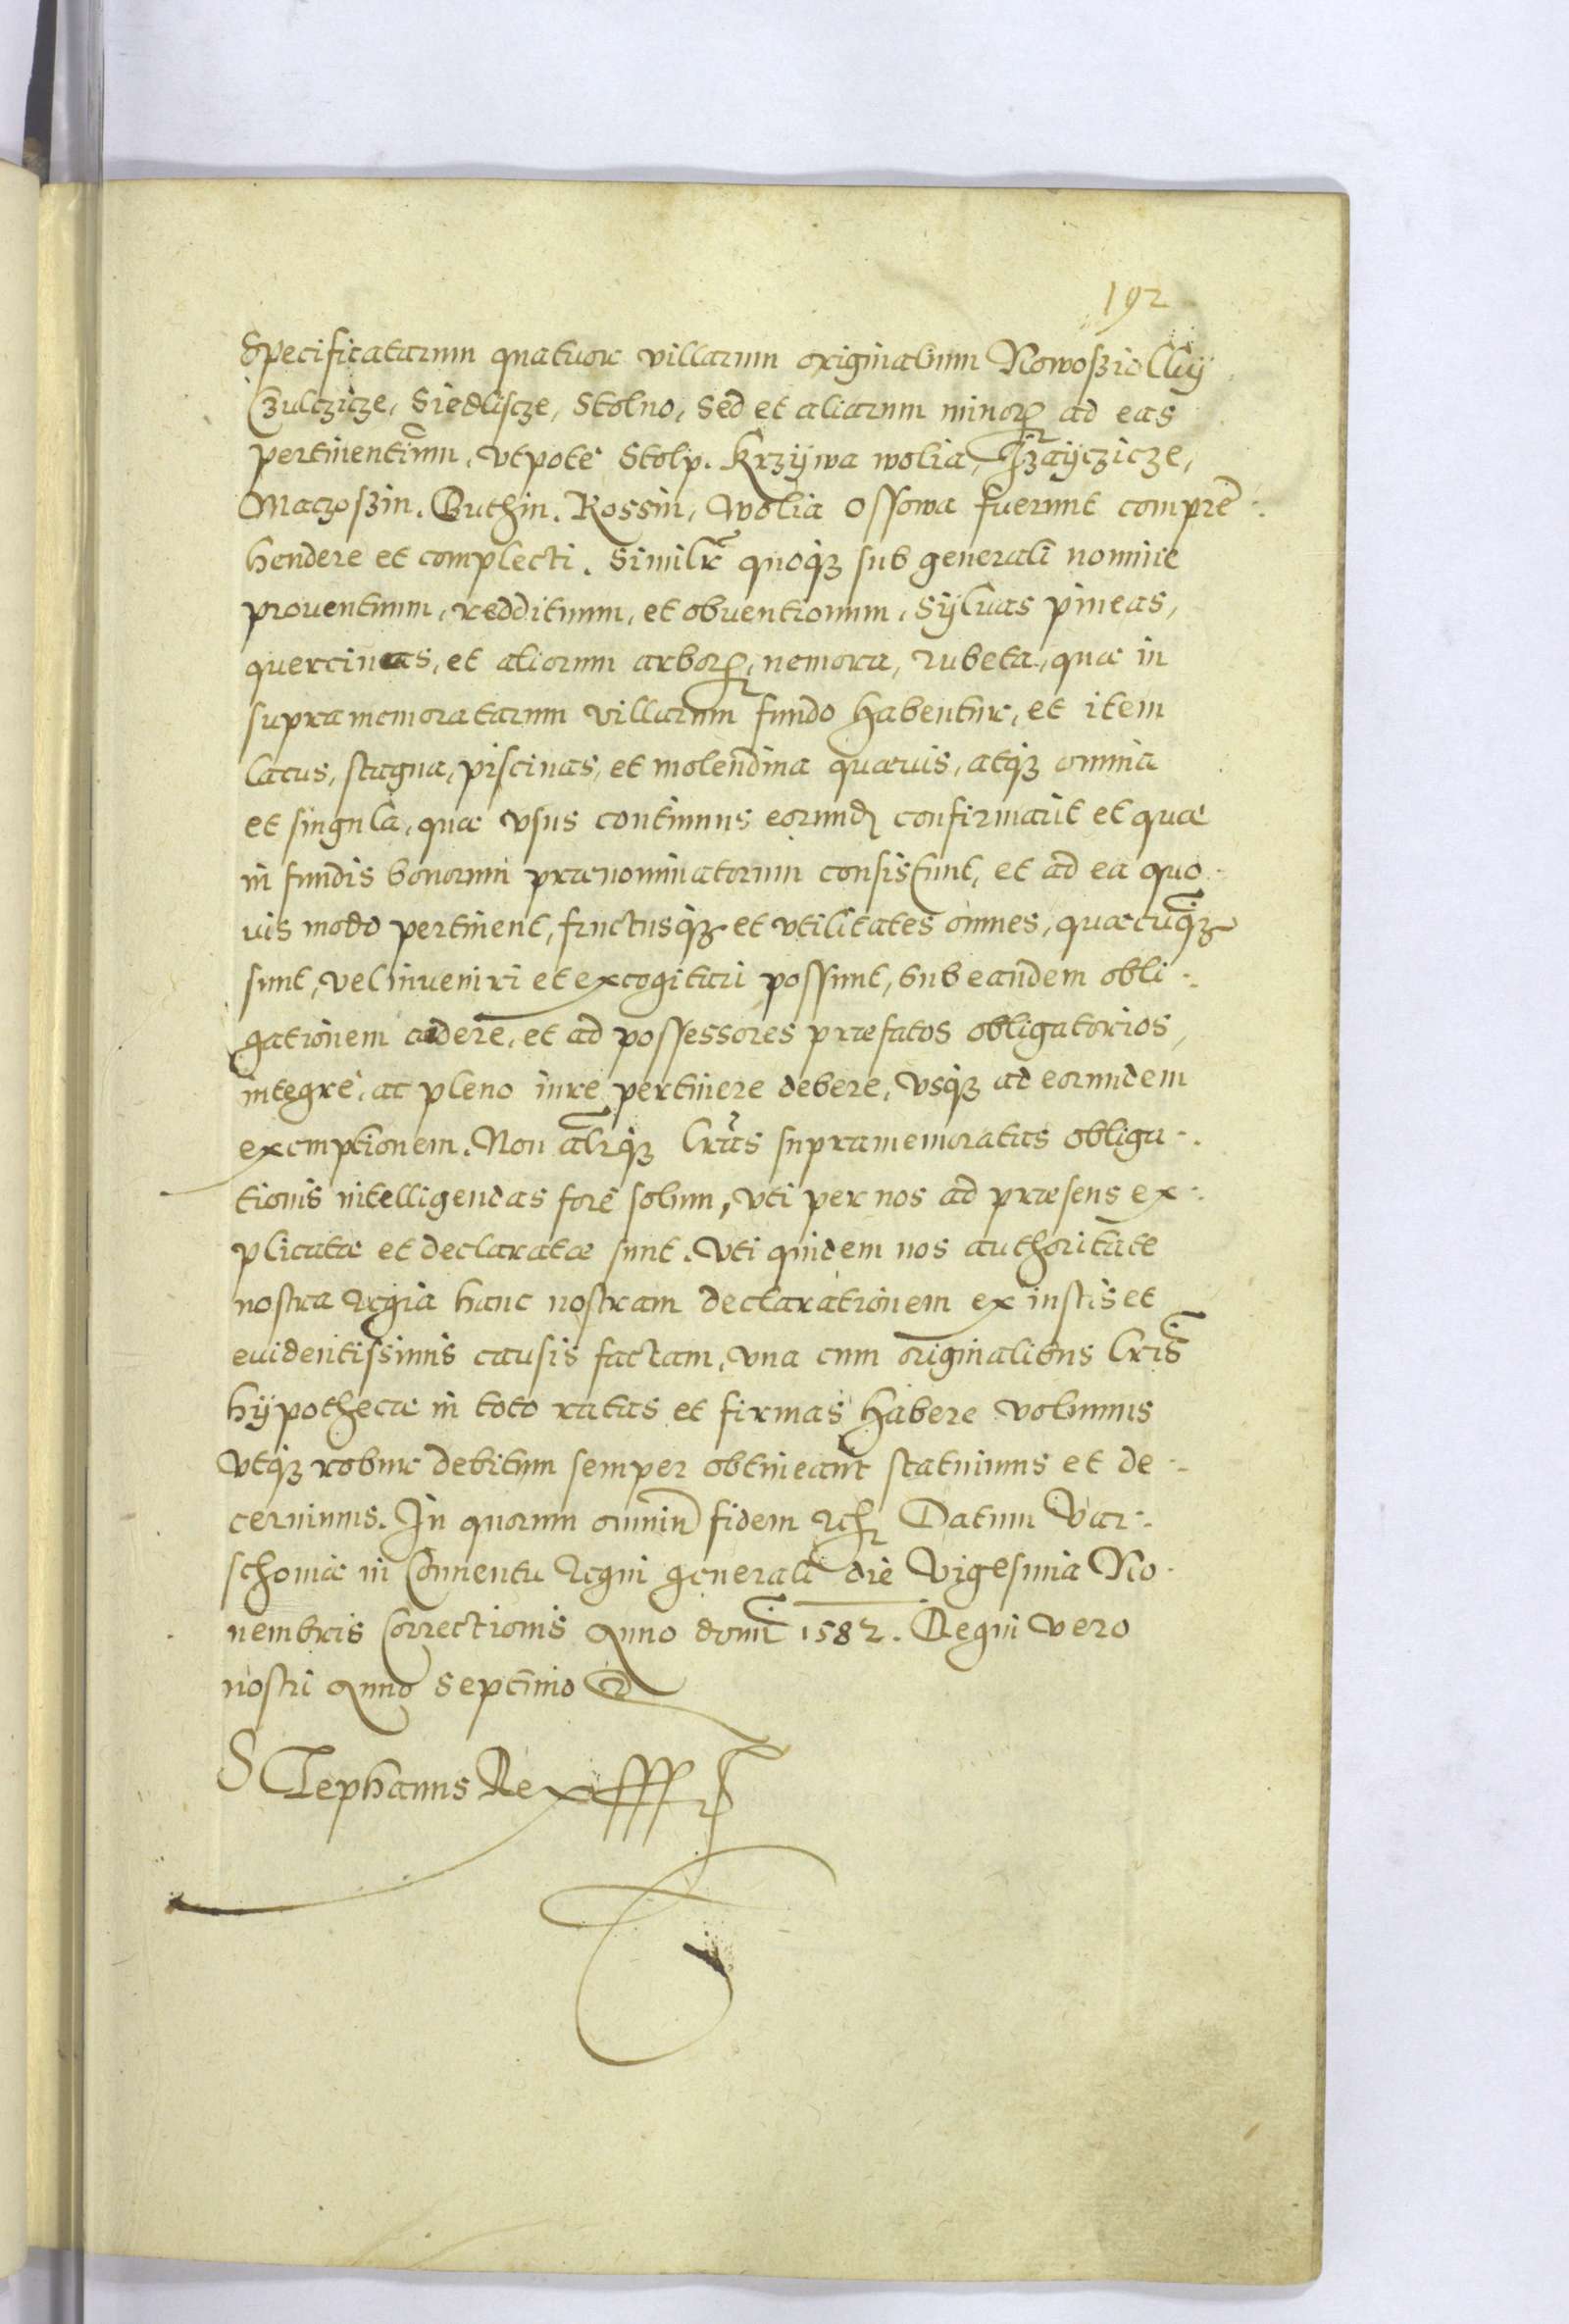 192
Specificatarum quatuor villarum originalium Nowosziolkÿ
Czulczicze, Siedliscze, Stolno, Sed et aliarum minorꝝ ad eas
pertinentium, vtpote Stolp. Krzÿwa wolia,
Maczoszin. Buthin. Rossin, Wolia Ossowa fuerunt compre-
hendere et complecti. Similr quoqꝫ sub generali nomine
prouentuum, redditnum, et obuentionum, Sÿluas pineas,
quercinas, et aliorum arborꝝ, nemora, rubeta, quæ in
supramemoratarum villarum fundo habentur, et item
lacus, stagna, piscinas, et molendina quæuis, atqꝫ omnia
et singula, quæ vsus continuus eorund confirmarit et quæ
in fundis bonorum prænominatorum consistunt, et ad ea quo-
uis modo pertinent, fructusqꝫ et vtilitates omnes, quæcuqꝫ
sunt, vel inueniri et excogitari possunt, sub eandem obli-
gationem cadere, et ad possessores præfatos obligatorios,
integre, ac pleno iure pertinere debere, vsqꝫ ad eorundem
exemptionem. Non alrqꝫ lras supramemoratas obliga-
tionis intelligendas fore solum, vti per nos ad præsens ex-
plicatæ et declaratæ sunt. Vti quidem nos authoritate
nostra regia hanc nostram declarationem ex iustis et
euidentissimis causis factam, vna cum originalibus lris
hÿpothecæ in toto ratas et firmas habere volumus
vtqꝫ robur debitum semper obtineant statuimus et de-
cernimus. In quorum omnium fidem rc Datum Var-
schouiæ in Conuentu Regni generali die Vigesima No-
uembris Correctionis Anno domi 1582. Regni vero
nostri Anno Septimo
Stephanus Rex